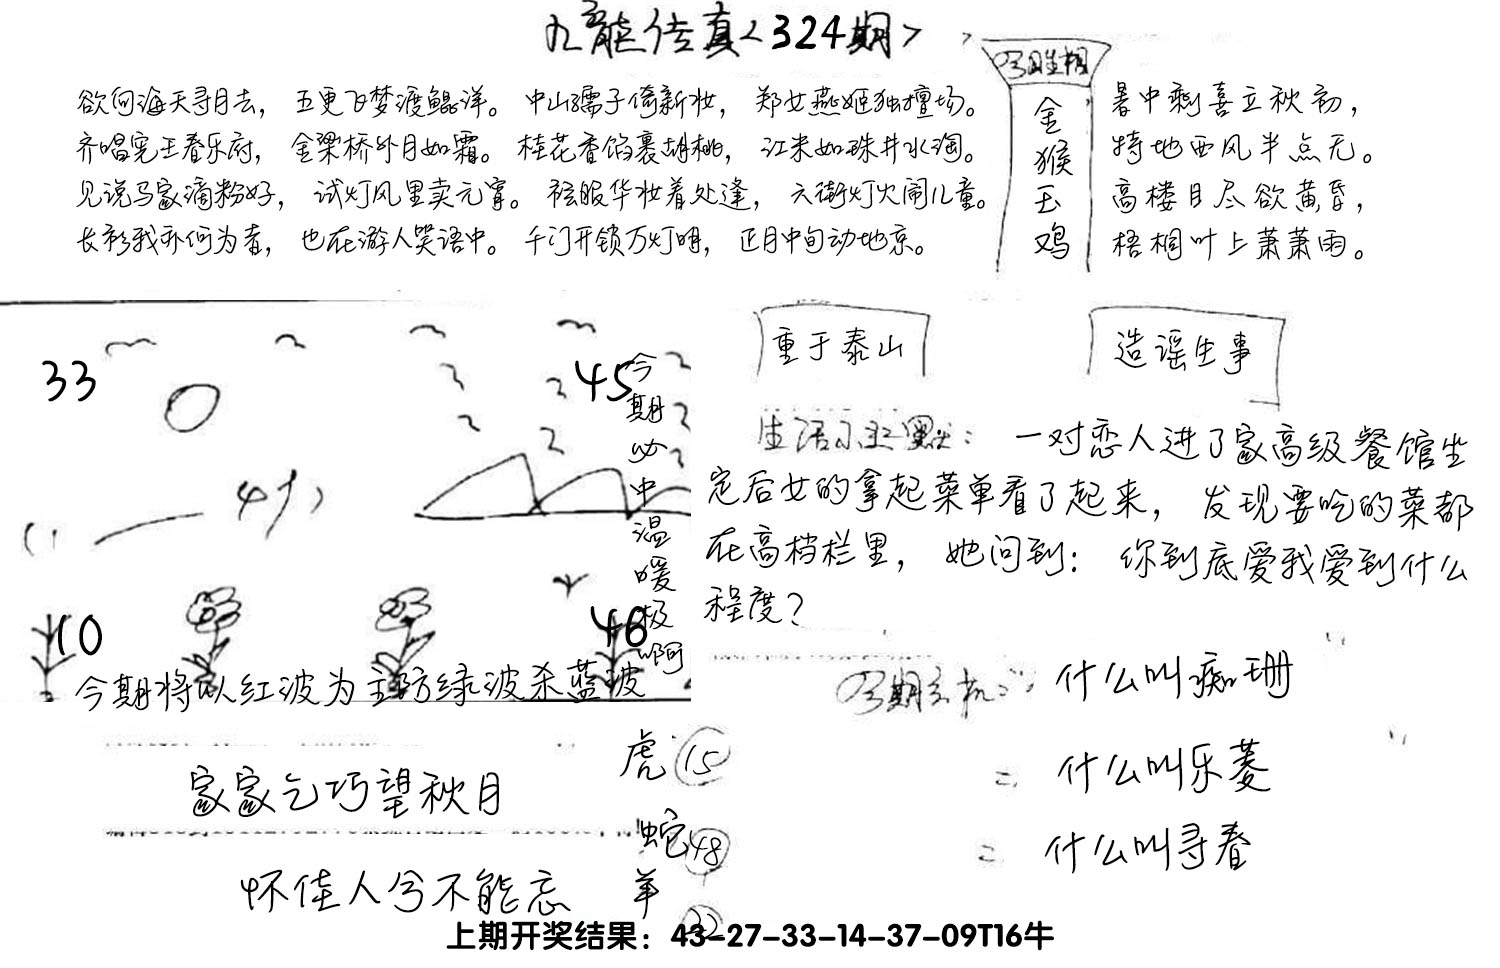 九龍传真<324期>
欲向海天寻月去，五更飞梦渡鲲洋。中山孺子倚新妆，郑女燕姬独擅场。
齐唱宪王春乐府，金梁桥外月如霜。桂花香馅裹胡桃，江米如珠井水淘。
见说马家滴粉好，试灯风里卖元宵。袨服华妆着处逢，六街灯火闹儿童。
长衫我亦何为者，也在游人笑语中。千门开锁万灯明，正月中旬动地京。
金
猴
玉
鸡
暑中剩喜立秋初，
特地西风半点无。
高楼目尽欲黄昏，
梧桐叶上萧萧雨。
33
45
10
46
今期必中温暖极啊
今期将以红波为主防绿波杀蓝波
重于泰山
造谣生事
一对恋人进了家高级餐馆坐
定后女的拿起菜单看了起来，发现要吃的菜都
在高档栏里，她问到：你到底爱我爱到什么
程度？
什么叫痴珊
什么叫乐菱
什么叫寻春
家家乞巧望秋月
怀佳人兮不能忘
虎 15
蛇 48
羊 32
上期开奖结果：43-27-33-14-37-09T16牛